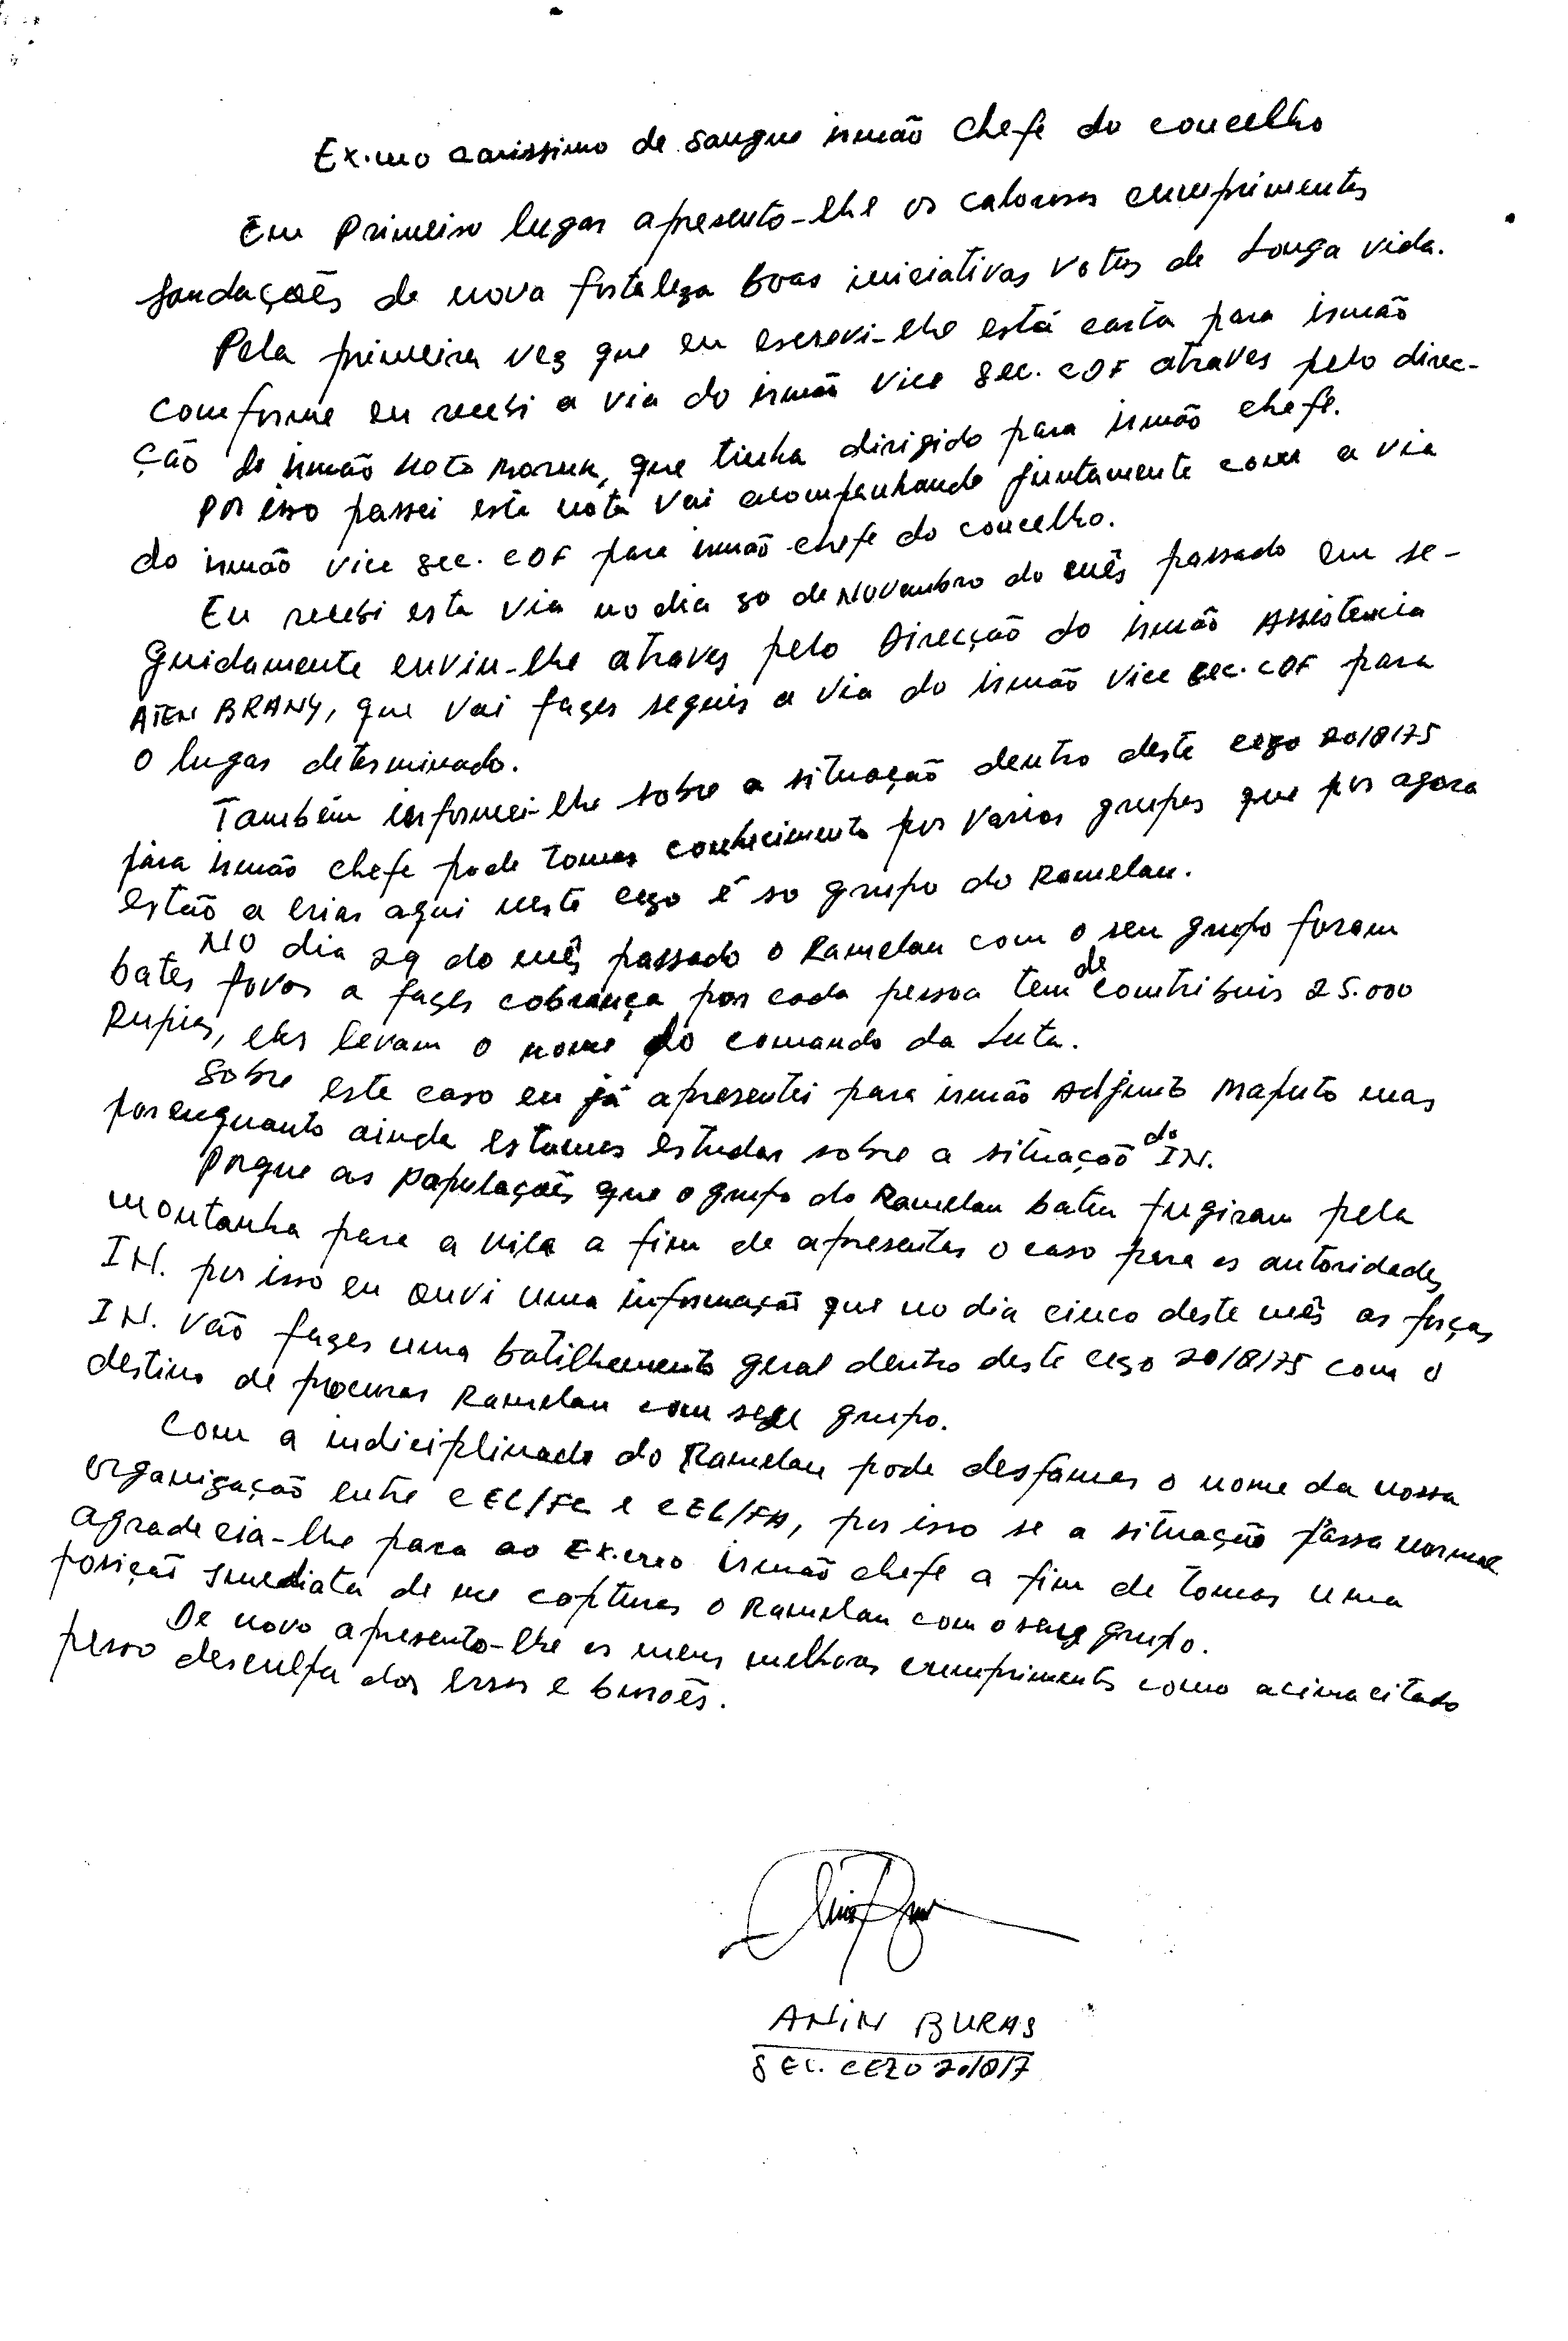 Ex.mo carissimo de sangue irmão chefe do concelho
Em Primeiro lugar apresento-lhe os calorosos cumprimentos
saudações de nova fortaleza boas iniciativas votos de Longa vida.
Pela primeira vez que eu escrevi-lhe está carta para irmão
comforme eu recebi a via do irmão vice sec. COF atraves pelo direc-
ção do irmão Koto Moruk, que tinha dirigido para irmão chefe.
Por isso passei esta nota vai acompanhando juntamente com a via
do irmão vice sec. COF para irmão chefe do concelho.
Eu recebi esta via no dia 30 de Novembro do mês passado em se-
guidamente enviu-lhe atraves pelo Direcção do irmão Assistencia
ATEN BRANY, que vai fazer seguir a via do irmão vice sec. COF para
o lugar determinado.
Também informei-lhe sobre a situação dentro deste cezo 20/8/75
para irmão chefe pode tomar conhecimento por varios grupos que por agora
estão a criar aqui neste cezo é so grupo do Ramelau.
No dia 29 do mês passado o Ramelau com o seu grupo foram
bater povos a fazer cobrança por cada pessoa tem de contribuir 25.000
Rupias, eles levam o nome do comando da Luta.
Sobre este caso eu já apresentei para irmão Adjunto Maputo mas
porenquanto ainda estamos estudar sobre a situação do IN.
Porque as populações que o grupo do Ramelau bateu fugiram pela
montanha para a vila a fim de apresentar o caso para as autoridades
IN. por isso eu ouvi uma informação que no dia cinco deste mês as forças
IN. vão fazer uma batilhamento geral dentro deste cezo 20/8/75 com o
destino de procurar Ramelau com seu grupo.
Com a indiciplinado do Ramelau pode desfamar o nome da nossa
organização entre CEL/FC e CEL/FA, por isso se a situação passa normal
agradecia-lhe para ao Ex.mo irmão chefe a fim de tomar uma
posição imediata de me capturar o Ramelau com o seu grupo.
De novo apresento-lhe os meus melhores cumprimentos como acimacitado
pesso desculpa dos erros e burrões.
ANIN BURAS
SEC. CEZO 20/8/7